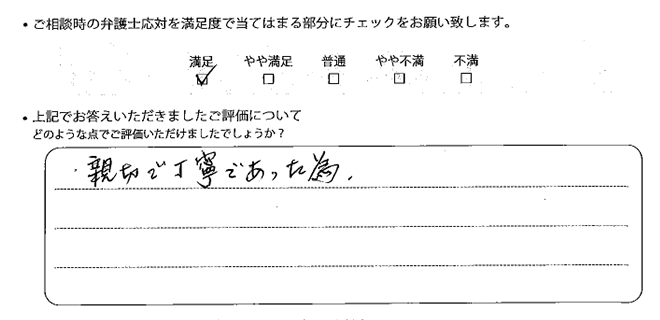 ・ご相談時の弁護士応対を満足度で当てはまる部分にチェックをお願い致します。
満足 やや満足 普通 やや不満 不満
☑ □ □ □ □
・上記でお答えいただきましたご評価について
どのような点でご評価いただけましたでしょうか？
・親切で丁寧であった為.